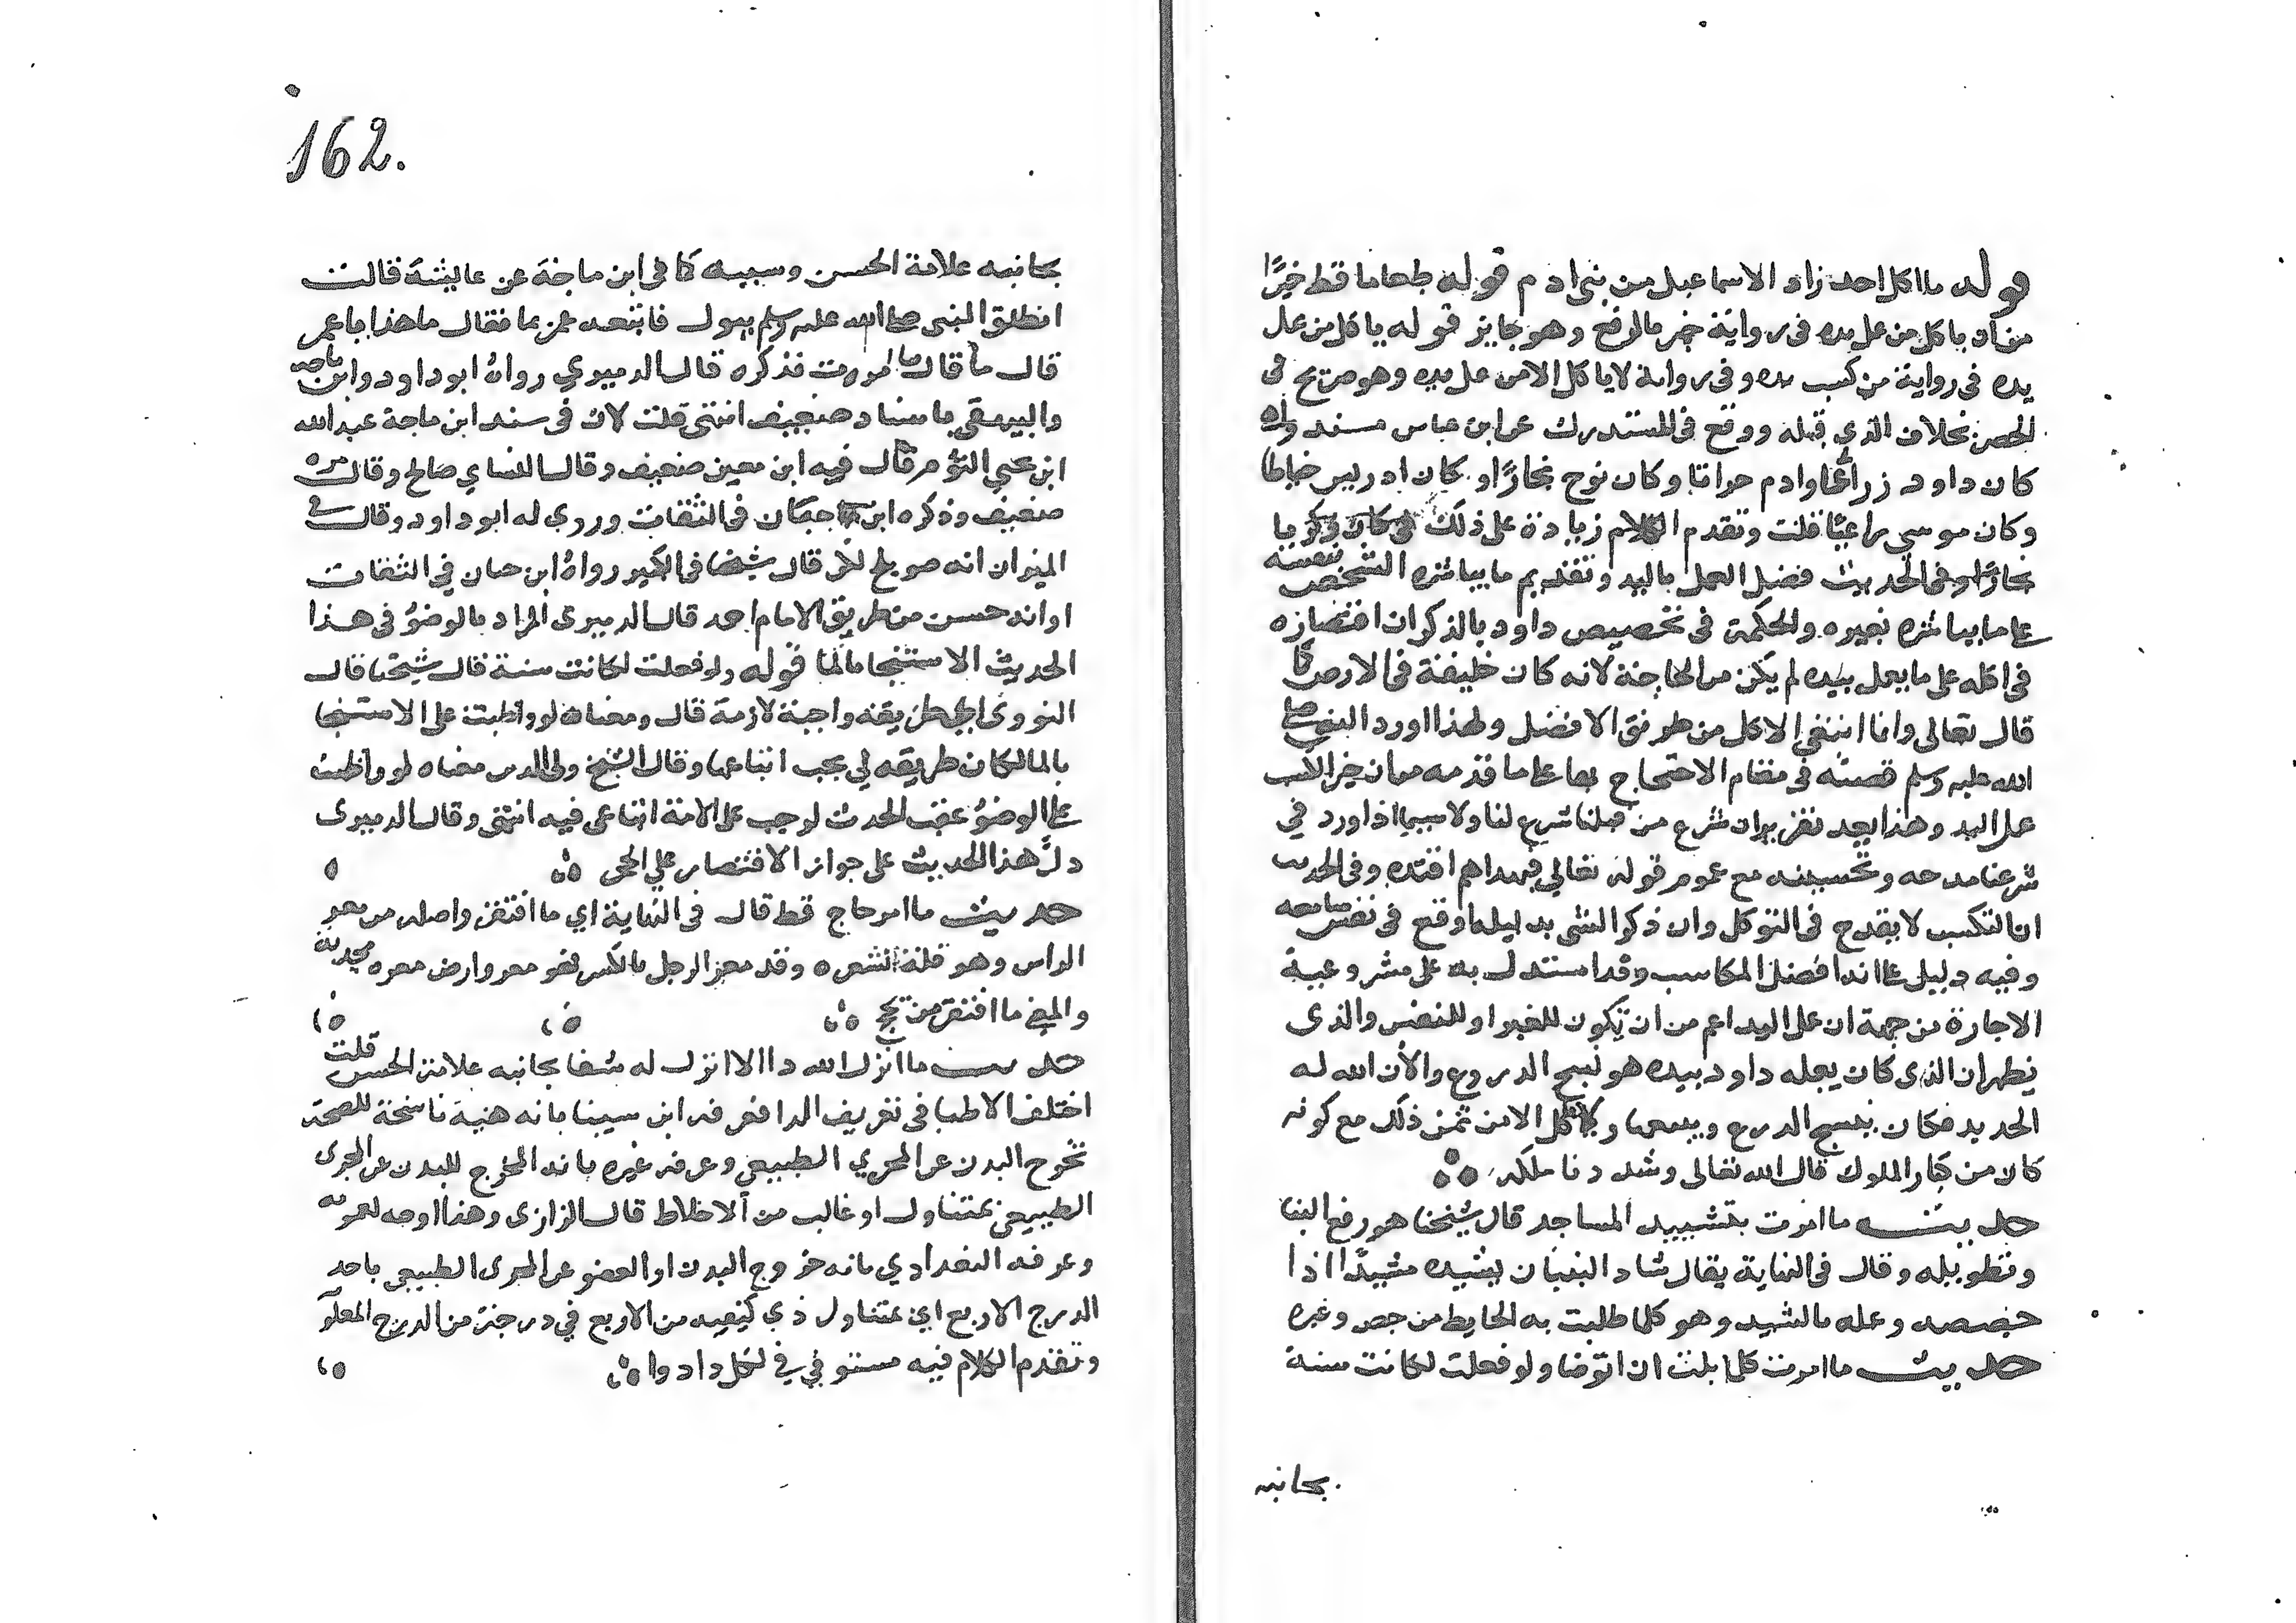 قوله ما اكل احد زاد الاسماعيل من بني ادم قوله طعاما قط خيرًا
من ان ياكل من عمل يده في رواية خير بالرفع وهو جايز قوله ياكل من عمل
يده في رواية من كسب يده وفي رواية لا ياكل الا من عمل يده وهو صريح في
الحصر بخلاف الذي قبله ووقع في المستدرك عن ابن عباس بسند واه
كان داود زرادًا وادم حراثا وكان نوح نجارًا وكان ادريس خياطا
وكان موسى راعيًا قلت وتقدم الكلام زيادة على ذلك في كان زكريا
نجارًا وفي الحديث فضل العمل باليد وتقديم ما يباشره الشخص بنفسه
على ما يباشره بغيره والحكمة في تخصيص داود بالذكر ان اقتصاره
في اكله على ما يعمل بيده لم يكن من الحاجة لانه كان خليفة في الارض كما
قال تعالى وانما ابتغى الاكل من طريق الافضل ولهذا اورد النبي صلى
الله عليه وسلم قصته في مقام الاحتجاج بها على ما قدمه من ان خير الكسب
عمل اليد وهذا بعد تقرير ان شرع من قبلنا شرع لنا ولا سيما اذا ورد في
شرعنا مدحه وتحسينه مع عموم قوله تعالى فبهداهم اقتده وفي الحديث
ان التكسب لا يقدح في التوكل وان ذكر الشى بدليله اوقع في نفس سامعه
وفيه دليل على انه افضل المكاسب وقد استدل به على مشروعية
الاجارة من جهة ان عمل اليد اعم من ان يكون للغير او للنفس والذي
يظهر ان الذي كان يعمله داود بيده هو نسج الدروع والان الله له
الحديد فكان ينسج الدرع ويبيعها ولا ياكل الا من ثمن ذلك مع كونه
كان من كبار الملوك قال الله تعالى وشددنا ملكه
حديث ما امرت بتشييد المساجد قال شيخنا هو رفع البنا
وتطويله وقال في النهاية يقال شاد البنيان يشيده مشيدًا اذا
جصصه وعمله بالشيد وهو كلما طليت به الحايط من جص وغيره
حديث ما امرت كلما بلت ان اتوضا ولو فعلت لكانت سنة
بجانبه
162.
بجانبه علامة الحسن وسببه كما في ابن ماجة عن عايشة قالت
انطلق النبي صلى الله عليه وسلم يبول فاتبعه عمر بما فقال ما هذا يا عمر
قال ما قال ما امرت فذكره قال الدميري رواه ابو داود وابن ماجه
والبيهقي باسناد ضعيف انتهى قلت لان في سند ابن ماجة عبد الله
ابن يحيى التؤم قال فيه ابن معين ضعيف وقال النساي صالح وقال مره
ضعيف وذكره ابن حبان في الثقات وروى له ابو داود وقال في
الميزان انه صويلح لكن قال شيخنا في الكبير رواه ابن حبان في الثقات
او انه حسن من طريق الامام احمد قال الدميري المراد بالوضوء في هذا
الحديث الاستنجا بالما قوله ولو فعلت لكانت سنة قال شيخنا قال
النووي اي طريقة واجبة لازمة قال ومعناه لو واظبت على الاستنجا
بالما لكان طريقه لي يجب اتباعها وقال الشيخ ولي الدين معناه لو واظبت
على الوضوء عقب الحدث لوجب على الامة اتباعي فيه انتهى وقال الدميري
دلّ هذا الحديث على جواز الاقتصار على الحجر
حديث ما امعر حاج قط قال في النهاية اي ما افتقر واصله من معر
الراس وهو قلة الشعر وقد معر الرجل بالكسر فهو معر وارض معره مجدبة
والمعنى ما افتقر من يحج
حديث ما انزل الله داا الا انزل له شفا بجانبه علامة الحسن قلت
اختلف الاطبا في تعريف الدا فعرفه ابن سينا بانه هيئة ناسخة للصحة
تخرج البدن عن المجري الطبيعي وعرفه غيره بانه المخرج للبدن عن المجرى
الطبيعي بمتناول او غالب من الاخلاط قال الرازي وهذا اوجه لعمومه
وعرفه البغدادي بانه خروج البدن او العضو عن المجرى الطبيعي باحد
الدرج الاربع اي بمتناول ذي كيفية من الاربع في درجة من الدرج المعلو
وتقدم الكلام فيه مستوفي في لكل دا دوا